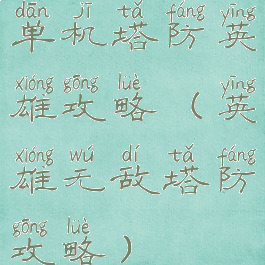 dān jī tǎ fáng yīng
单机塔防英
xióng gōng lüè yīng
雄攻略（英
xióng wú dí tǎ fáng
雄无敌塔防
gōng lüè
攻略）